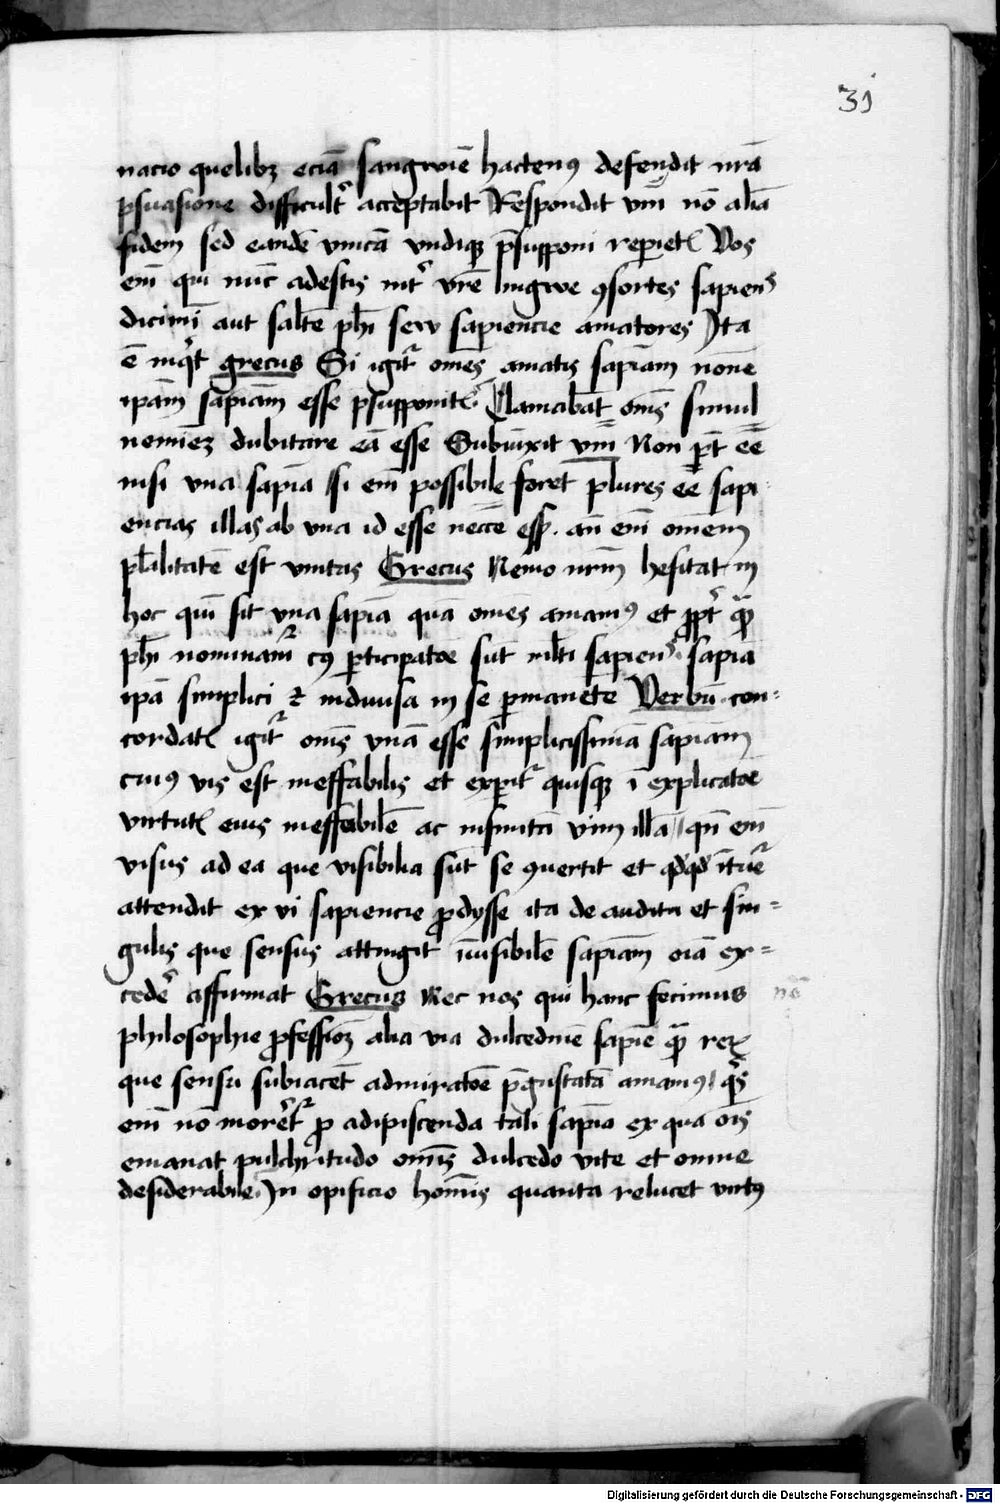 31
nacio quelibz eciā sangwīe hacten9 defendit nrā
psuasione difficult' acceptabit Respondit vm̄ nō aliā
fidem sed eandē vnicā vndiqz p̄supponi reperiet~ Vos
em̄ qui nūc adestis int' vrē lingwe 9sortes sapien~
dicimī aut saltē ph̄i sew sapiencie amatores Ita
ē inq't grecus Si igit~ om̄es amatis sapīam nōne
ipām sapīam esse p̄supponit~ Clamabāt om̄s simul
neminēz dubitare eā esse Subiūxit vm̄ Non pt̄ eē
nisi vna sapīa si em̄ possibile foret plures eē sapi
encias illas ab vna id esse neccē esset an̄ em̄ omēm
pl̄alitatē est vnitas Grecus Nemo nrm̄ hesitat in
hoc quī sit vna sapīa quā om̄es amam9 et ppt' quā
ph̄i nominam~ c9 pticipatōe sūt mlti sapien~ sapīa
ipā simplici et indiuisa in se pmanēte Verbū con=
cordat~ igit~ om̄s vnā esse simplicissimā sapīam
cui9 vis est ineffabilis et expit~ quisqz ī explicatōe
virtut~ eius ineffabilē ac infinitā vim illā qn̄ em̄
visus ad ea que visibilia sūt se 9uertit et qdqd ītuē~
attendit ex vi sapiencie pdysse ita de auditu et sin=
gulis que sensus attingit īuisibilē sapīam oīa ex=
cedē' affirmat Grecus Nec nos qui hanc fecimus
philosophie pfessionz alia via dulcedinē sapīe quā rex
que sensu subiacēt admiratōe p̄gustatā amam9 q's
em̄ nō morēt~ p adipiscenda tali sapīa ex qua oīs
emanat pulchritudo om̄is dulcedo vite et omne
desiderabile In opificio homīs quanta relucet virt9